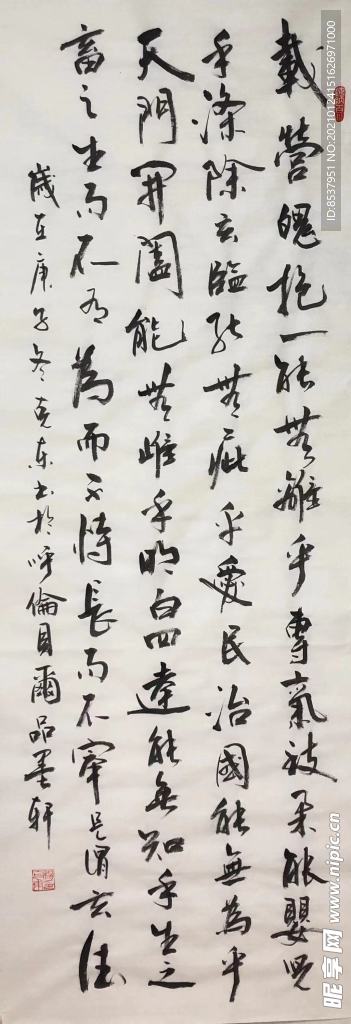 載營魄抱一能無離乎專氣致柔能嬰兒
乎滌除玄臨能無疵乎愛民治國能無為乎
天門開闔能無雌乎明白四達能無知乎生之
畜之生而不有為而不恃長而不宰是謂玄德
歲在庚子冬克東書於呼倫貝爾品墨軒
ID:8537951 NO:20210124151626971000
昵享网 www.nipic.cn